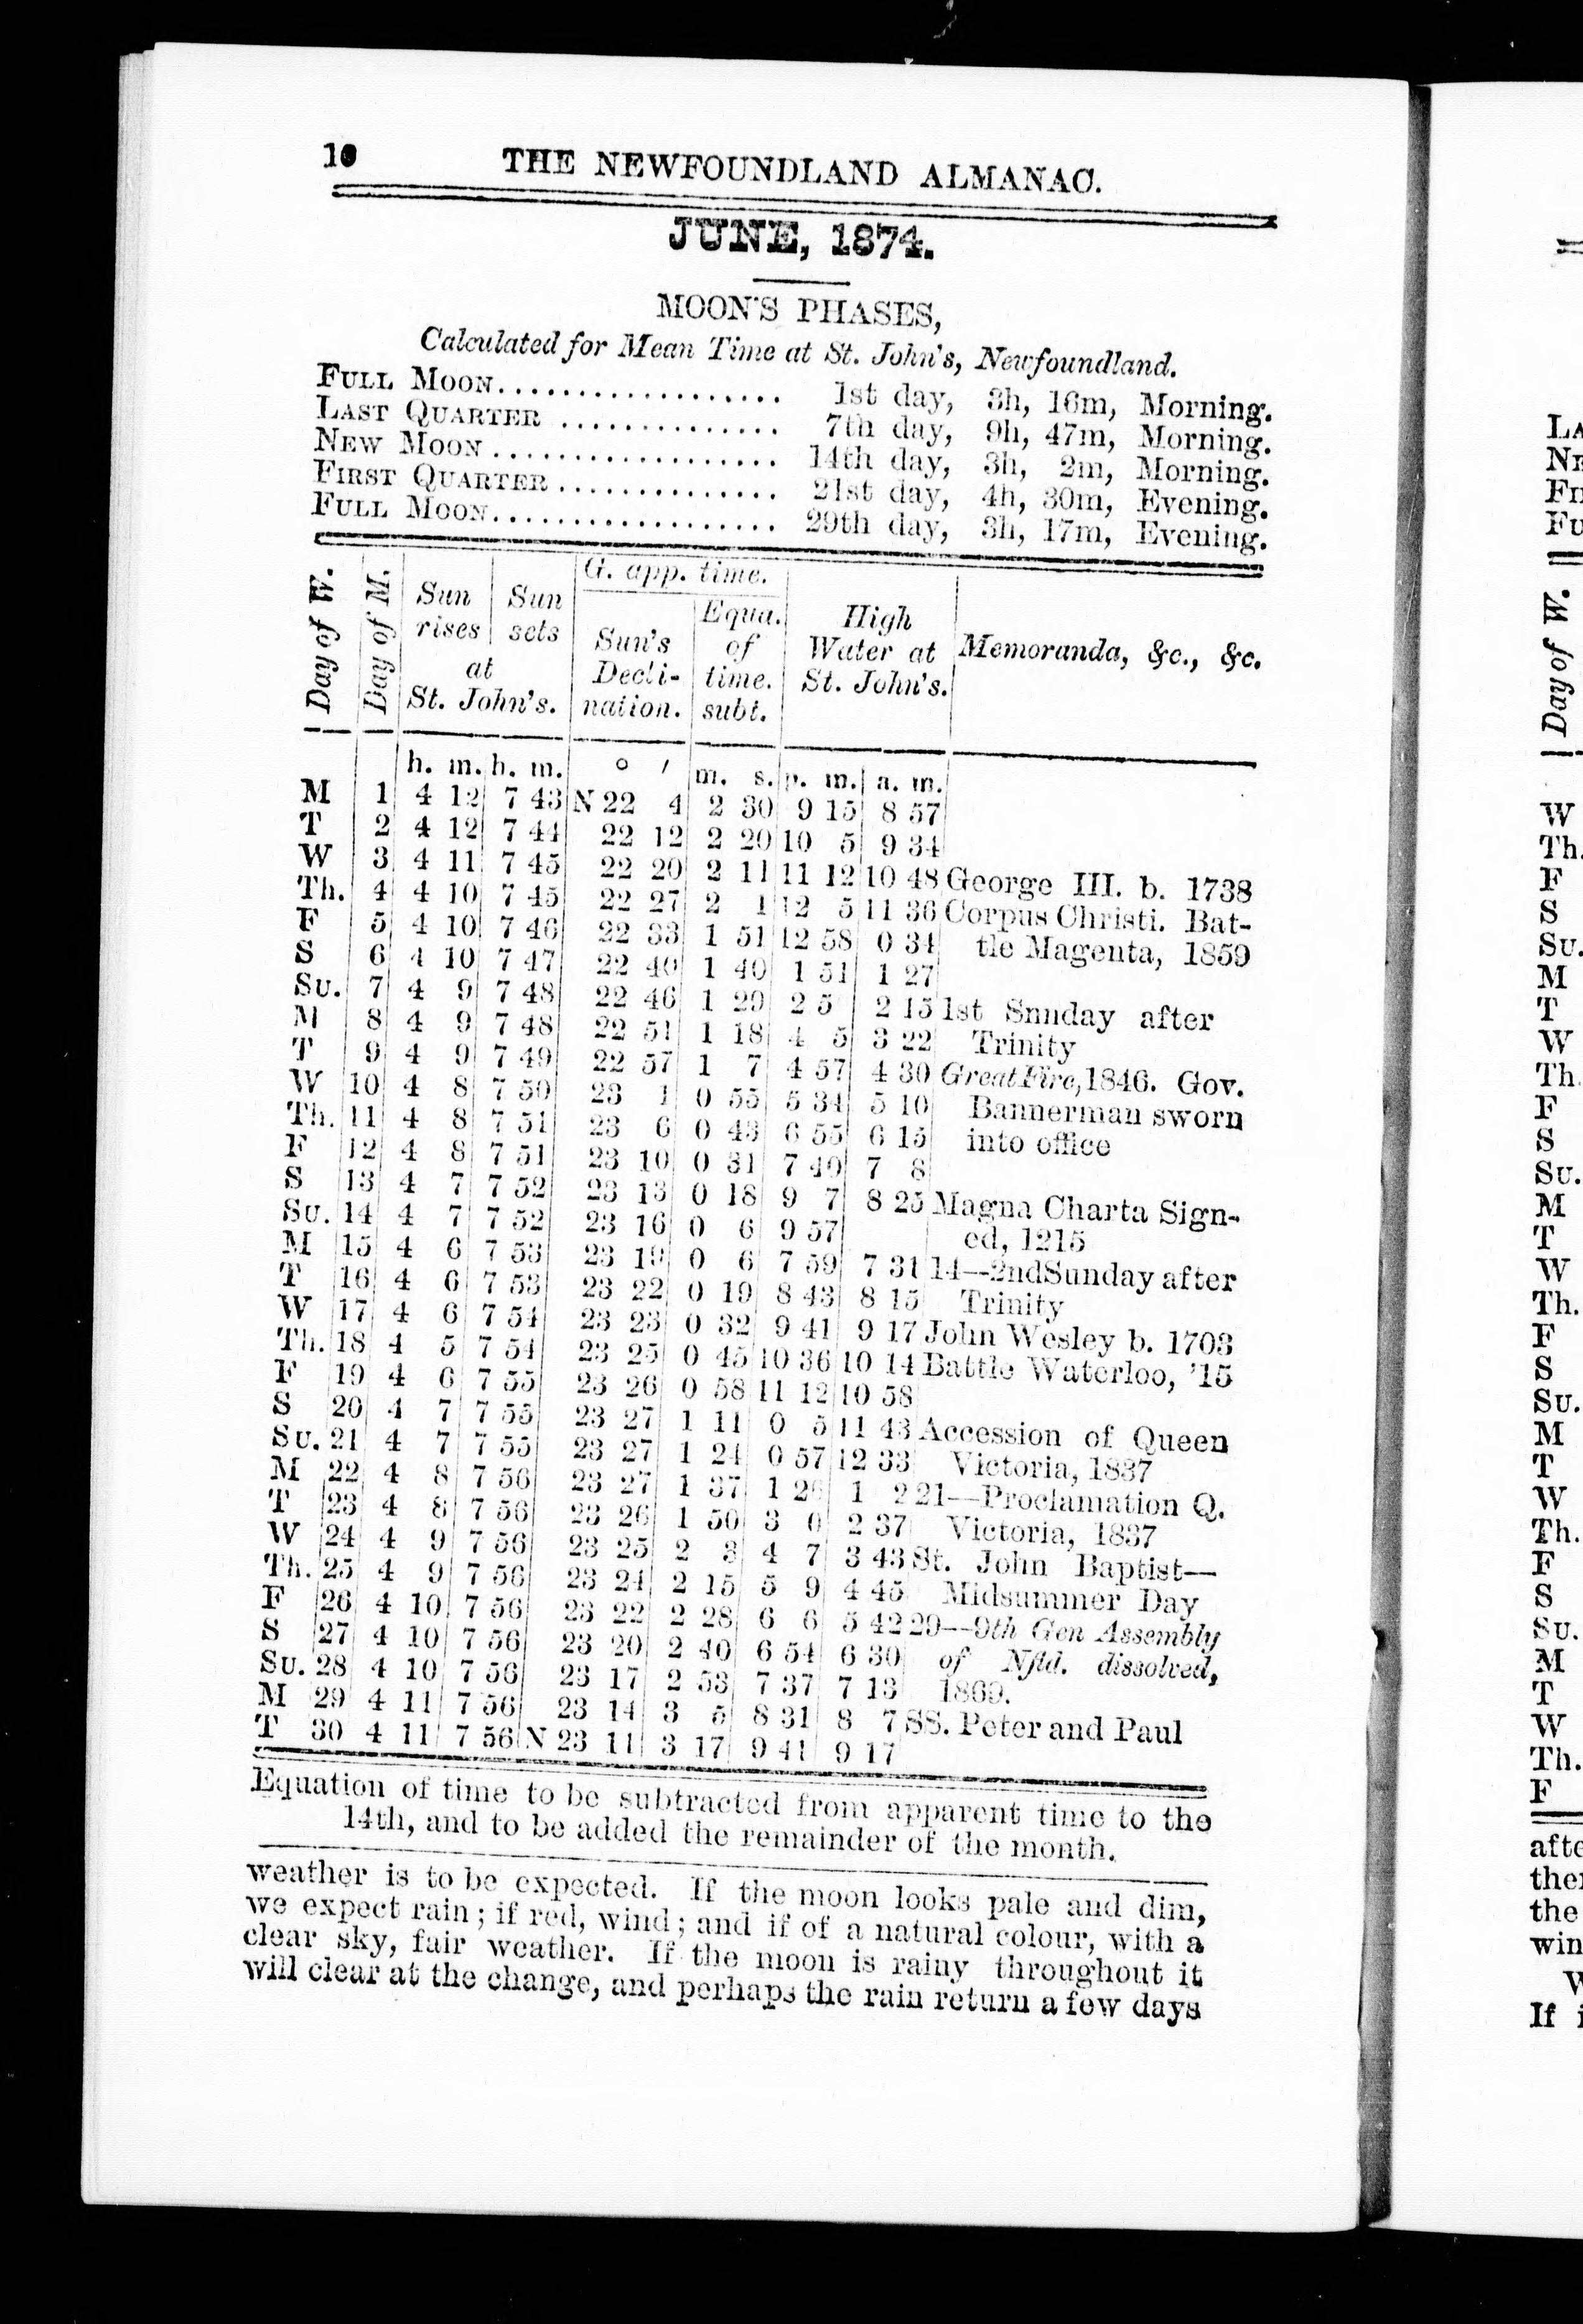 10 THE NEWFOUNDLAND ALMANAC.
JUNE, 1874.
MOON'S PHASES,
Calculated for Mean Time at St. John's, Newfoundland.
FULL MOON................... 1st day, 3h, 16m, Morning.
LAST QUARTER .............. 7th day, 9h, 47m, Morning.
NEW MOON .................. 14th day, 3h, 2m, Morning.
FIRST QUARTER .............. 21st day, 4h, 30m, Evening.
FULL MOON................... 29th day, 3h, 17m, Evening.
Day of W. Day of M. Sun rises Sun sets at St. John's. G. app. time. Sun's Decli- nation. Equa. of time. subt. High Water at St. John's. Memoranda, &c., &c.
h. m. h. m. ° ′ m. s. p. m. a. m.
M 1 4 12 7 43 N 22 4 2 30 9 15 8 57
T 2 4 12 7 44 22 12 2 20 10 5 9 34
W 3 4 11 7 45 22 20 2 11 11 12 10 48 George III. b. 1738
Th. 4 4 10 7 45 22 27 2 1 12 5 11 36 Corpus Christi. Bat-
F 5 4 10 7 46 22 33 1 51 12 58 0 34 tle Magenta, 1859
S 6 4 10 7 47 22 40 1 40 1 51 1 27
Su. 7 4 9 7 48 22 46 1 29 2 5 2 15 1st Snnday after
M 8 4 9 7 48 22 51 1 18 4 5 3 22 Trinity
T 9 4 9 7 49 22 57 1 7 4 57 4 30 Great Fire, 1846. Gov.
W 10 4 8 7 50 23 1 0 55 5 34 5 10 Bannerman sworn
Th. 11 4 8 7 51 23 6 0 43 6 55 6 15 into office
F 12 4 8 7 51 23 10 0 31 7 40 7 8
S 13 4 7 7 52 23 13 0 18 9 7 8 25 Magna Charta Sign-
Su. 14 4 7 7 52 23 16 0 6 9 57 ed, 1215
M 15 4 6 7 53 23 19 0 6 7 59 7 31 14—2nd Sunday after
T 16 4 6 7 53 23 22 0 19 8 43 8 15 Trinity
W 17 4 6 7 54 23 23 0 32 9 41 9 17 John Wesley b. 1703
Th. 18 4 5 7 54 23 25 0 45 10 36 10 14 Battle Waterloo, '15
F 19 4 6 7 55 23 26 0 58 11 12 10 58
S 20 4 7 7 55 23 27 1 11 0 5 11 43 Accession of Queen
Su. 21 4 7 7 55 23 27 1 24 0 57 12 33 Victoria, 1837
M 22 4 8 7 56 23 27 1 37 1 26 1 2 21—Proclamation Q.
T 23 4 8 7 56 23 26 1 50 3 0 2 37 Victoria, 1837
W 24 4 9 7 56 23 25 2 3 4 7 3 43 St. John Baptist—
Th. 25 4 9 7 56 23 24 2 15 5 9 4 45 Midsummer Day
F 26 4 10 7 56 23 22 2 28 6 6 5 42 29—9th Gen Assembly
S 27 4 10 7 56 23 20 2 40 6 54 6 30 of Nfld. dissolved,
Su. 28 4 10 7 56 23 17 2 53 7 37 7 13 1869.
M 29 4 11 7 56 23 14 3 5 8 31 8 7 SS. Peter and Paul
T 30 4 11 7 56 N 23 11 3 17 9 41 9 17
Equation of time to be subtracted from apparent time to the
14th, and to be added the remainder of the month.
weather is to be expected. If the moon looks pale and dim,
we expect rain; if red, wind; and if of a natural colour, with a
clear sky, fair weather. If the moon is rainy throughout it
will clear at the change, and perhaps the rain return a few days
Day of W.
W
Th.
F
S
Su.
M
T
W
Th.
F
S
Su.
M
T
W
Th.
F
S
Su.
M
T
W
Th.
F
S
Su.
M
T
W
Th.
F
the
If